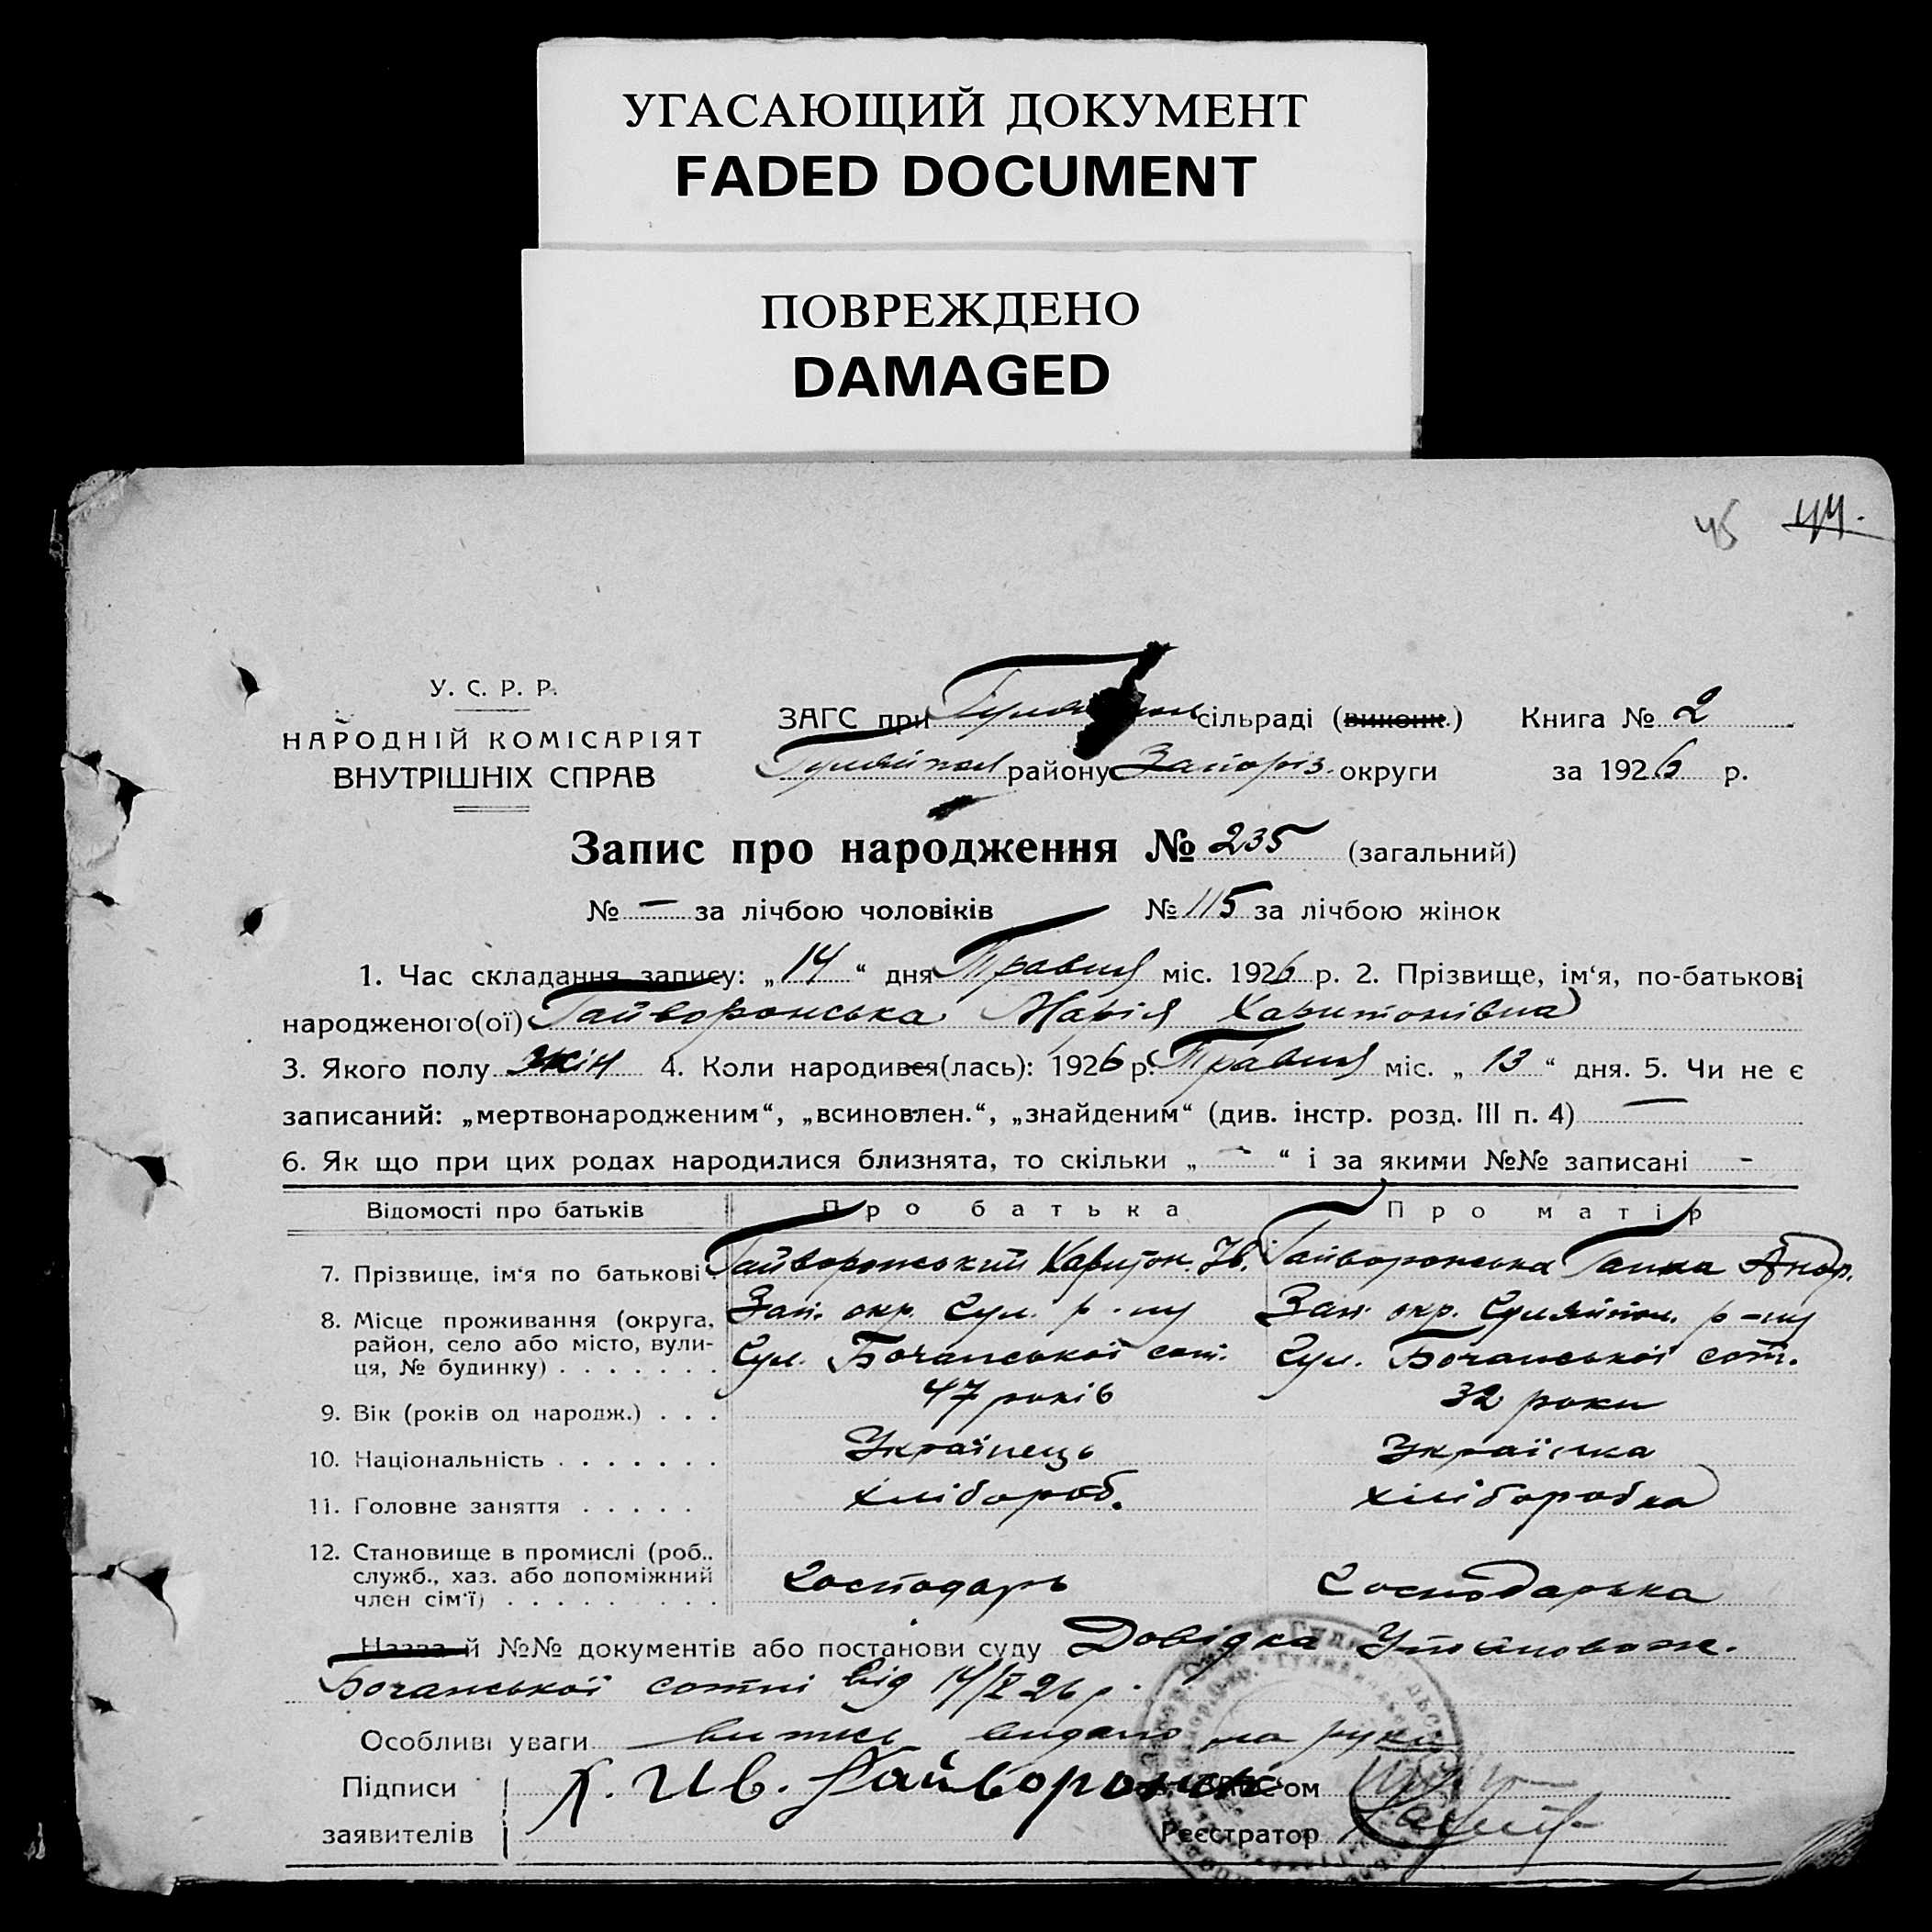 УГАСАЮЩИЙ ДОКУМЕНТ
FADED DOCUMENT
ПОВРЕЖДЕНО
DAMAGED
45 44.
У. С. Р. Р.
НАРОДНІЙ КОМІСАРІЯТ
ВНУТРІШНІХ СПРАВ
ЗАГС при сільраді (виконк.) Книга № 2
Гуляйпол району Запоріз. округи за 1926 р.
Запис про народження № 235 (загальний)
№ — за лічбою чоловіків № 115 за лічбою жінок
1. Час складання запису: „14“ дня Травня міс. 1926 р. 2. Прізвище, ім‘я, по-батькові
народженого(ої) Гайворонська Марія Харитонівна
3. Якого полу жін 4. Коли народився(лась): 1926 р. Травня міс. „13“ дня. 5. Чи не є
записаний: „мертвонародженим“, „всиновлен.“, „знайденим“ (див. інстр. розд. III п. 4) —
6. Як що при цих родах народилися близнята, то скільки „-“ і за якими №№ записані -
Відомості про батьків Про батька Про матір
7. Прізвище, ім‘я по батькові . Гайворонський Харитон. Ів. Гайворонська Ганна Андр.
8. Місце проживання (округа, район, село або місто, вулиця, № будинку) . . . . . . . Зап. окр. Гул. р-ну Гул. Бочанської сот. Зап. окр. Гуляйпол. р-ну Гул. Бочанської сот.
9. Вік (років од народж.) . . . 47 років 32 роки
10. Національність . . . . . . . Українець Українка
11. Головне заняття . . . . . хлібороб. хліборобка
12. Становище в промислі (роб., служб., хаз. або допоміжний член сім‘ї) . . . . . . . . . Господарь Господарька
Назва й №№ документів або постанови суду Довідка Уповноваж.
Бочанської сотні від 14/V 26 р.
Особливі уваги витяг видано на руки
Підписи Х. Ив. Гайворонск ЗАГС‘ом
заявителів Реєстратор